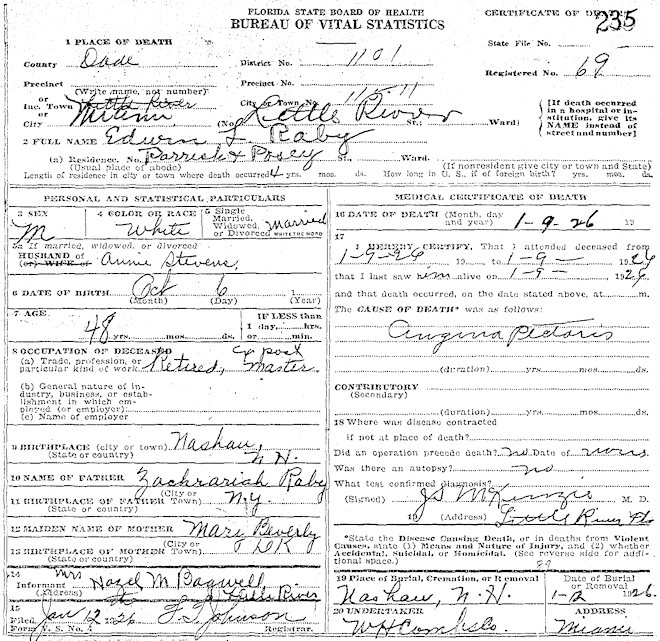 FLORIDA STATE BOARD OF HEALTH
BUREAU OF VITAL STATISTICS
CERTIFICATE OF DEATH
235
State File No.
Registered No. 69
1 PLACE OF DEATH
County Dade
District No. 1101
Precinct
(Write name, not number)
Precinct No.
or
Inc. Town Little River
City or Town No. 115-11
or
City Miami (No. Little River St.; Ward)
[If death occurred in a hospital or institution, give its NAME instead of street and number]
2 FULL NAME Edwin L. Raby
(a) Residence. No. Parrish & Posey St., Ward.
(Usual place of abode)
(If nonresident give city or town and State)
Length of residence in city or town where death occurred 4 yrs. mos. ds. How long in U. S., if of foreign birth? yrs. mos. ds.
PERSONAL AND STATISTICAL PARTICULARS
3 SEX
M
4 COLOR OR RACE
White
5 Single
Married,
Widowed,
or Divorced
Married
WRITE THE WORD
5a If married, widowed, or divorced
HUSBAND of
(or) WIFE of
Annie Stevens
6 DATE OF BIRTH Oct 6 1
(Month) (Day) (Year)
7 AGE
48 yrs. mos. ds.
IF LESS than
1 day, hrs.
or min.
8 OCCUPATION OF DECEASED
(a) Trade, profession, or
particular kind of work
Retired, Ex post Master
(b) General nature of in-
dustry, business, or estab-
lishment in which em-
ployed (or employer)
(c) Name of employer
9 BIRTHPLACE (city or town) Nashau,
(State or country) N. H.
10 NAME OF FATHER Zachrariah Raby
11 BIRTHPLACE OF FATHER (City or Town) N.Y.
(State or country)
12 MAIDEN NAME OF MOTHER Mary Beverly
13 BIRTHPLACE OF MOTHER (City or Town) D K
(State or country)
14
Informant Mrs Hazel M Bagwell
(Address) Little River
15
Jan 12 1926
Johnson
Registrar.
Form V. S. No. 4
MEDICAL CERTIFICATE OF DEATH
16 DATE OF DEATH (Month, day
and year) 1-9-26 19
17
I HEREBY CERTIFY, That I attended deceased from
1-9-26 19 to 1-9- 1926
that I last saw him alive on 1-9- 1926
and that death occurred, on the date stated above, at m.
The CAUSE OF DEATH* was as follows:
Angina Pectoris
(duration) yrs. mos. ds.
CONTRIBUTORY
(Secondary)
(duration) yrs. mos. ds.
18 Where was disease contracted
if not at place of death?
Did an operation precede death? no Date of
Was there an autopsy? no
What test confirmed diagnosis?
(Signed) J S McKenzie M. D.
19 (Address) Little River Fla
*State the Disease Causing Death, or in deaths from Violent
Causes, state (1) Means and Nature of Injury, and (2) whether
Accidental, Suicidal, or Homicidal. (See reverse side for addi-
tional space.)
19 Place of Burial, Cremation, or Removal
Nashau, N. H.
Date of Burial
or Removal
1-12 1926.
20 UNDERTAKER
W H Combs Co
ADDRESS
Miami